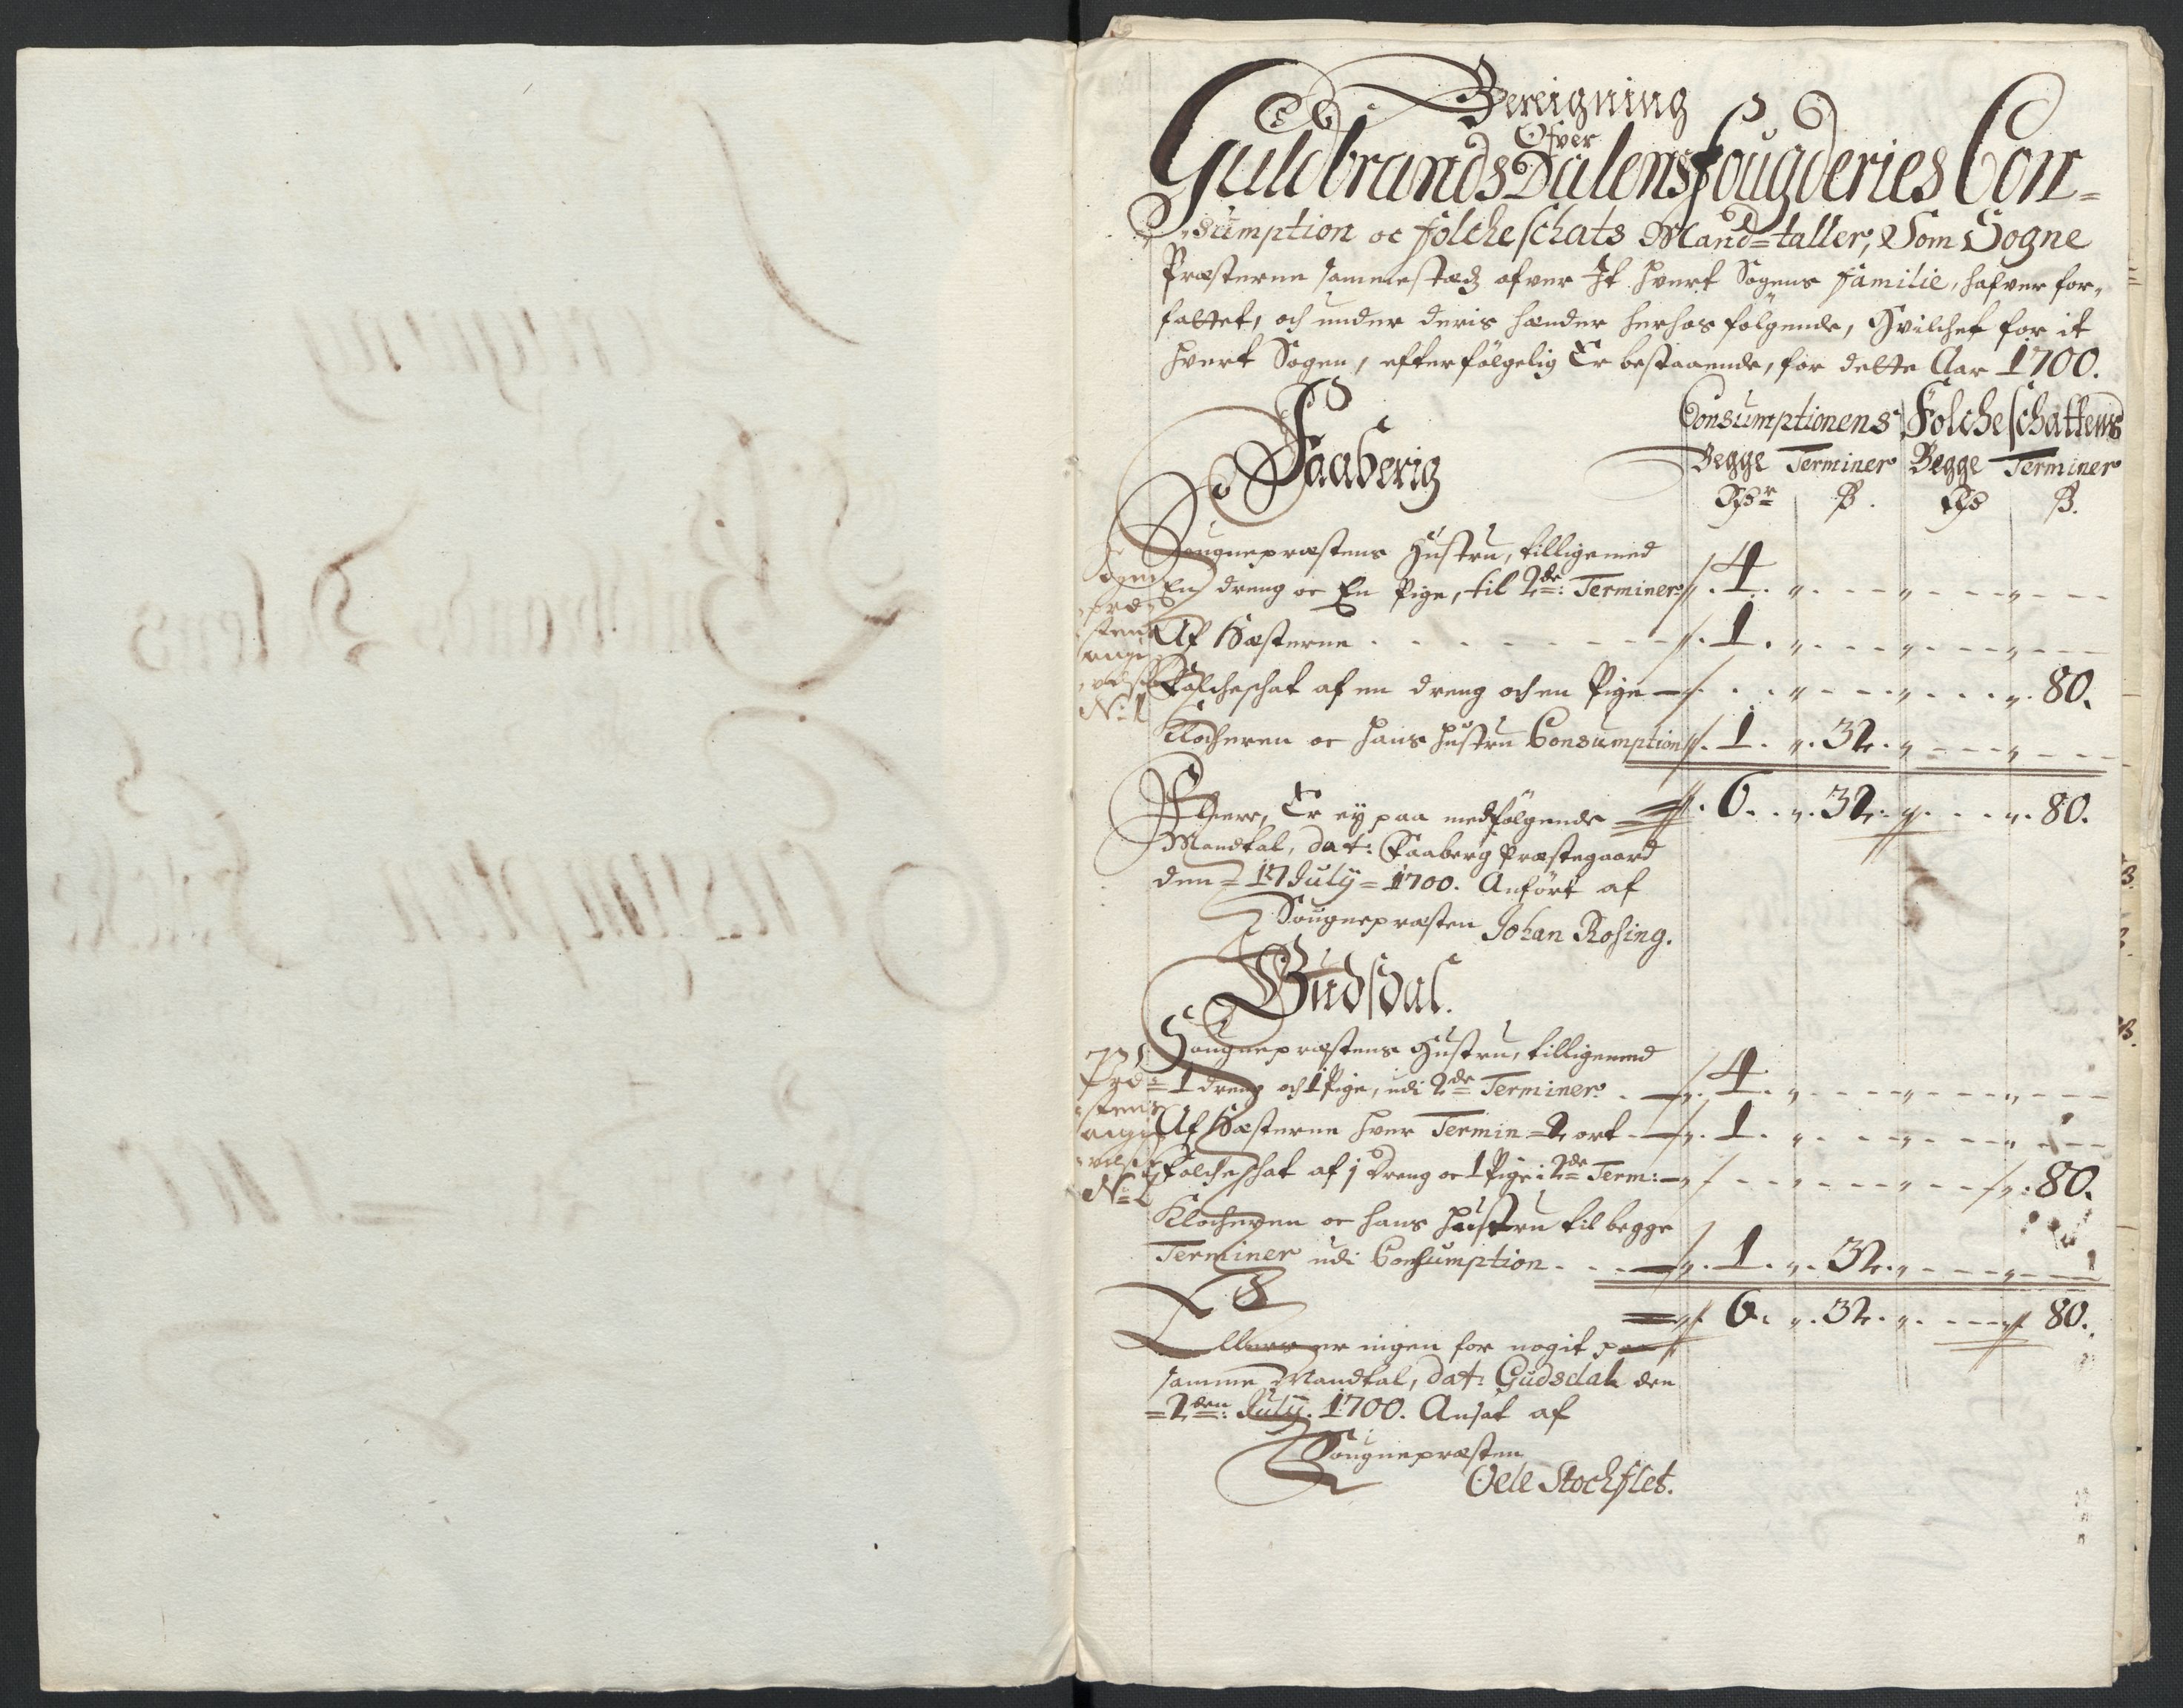 Bereigning
Ofver
GuldbrandsDalens fougderies Con-
sumption oc folcheschats Mand-taller, Som Sogne
Præsterne sammestædz ofver It hvert Sogens familie, hafver for-
fattet, och under deris hænder herhos følgende, Hvilchet for it
hvert Sogen, efterfølgelig Er bestaaende, for dette Aar 1700.
Consumptionens Folcheschattens
Faaberig
Begge Terminer Begge Terminer
Sougnepræstens Hustru, tilligemed
En dreng oc En Pige, til 2de: Terminer 4
Af Hæsterne 1
Folcheschat af en dreng och en Pige 80.
Klocheren oc hans hustru Consumption 1. 32.
No: 1
Fleere, Er ey paa medfølgende 6. 32. 80.
Mandtal, dat: Faaberg Præstegaard
den = 17 July = 1700. Anført af
Sougnepræsten Johan Rosing.
Gudsdal.
Sougnepræstens Hustru, tilligemed
1 dreng och 1 Pige, udi 2de Terminer 4
Af Hæsterne hver Termin = 2 ort 1
Folcheschat af 1 Dreng oc 1 Pige i 2de Term: 80.
No: 2
Klocheren oc hans hustru til begge
Terminer udi Consumption 1. 32.
6. 32. 80.
Ellers er ingen for nogit paa
samme Mandtal, dat: Gudsdals den
= 2den: July. 1700. Ansat af
Sougnepræsten
Oele Stockflet.